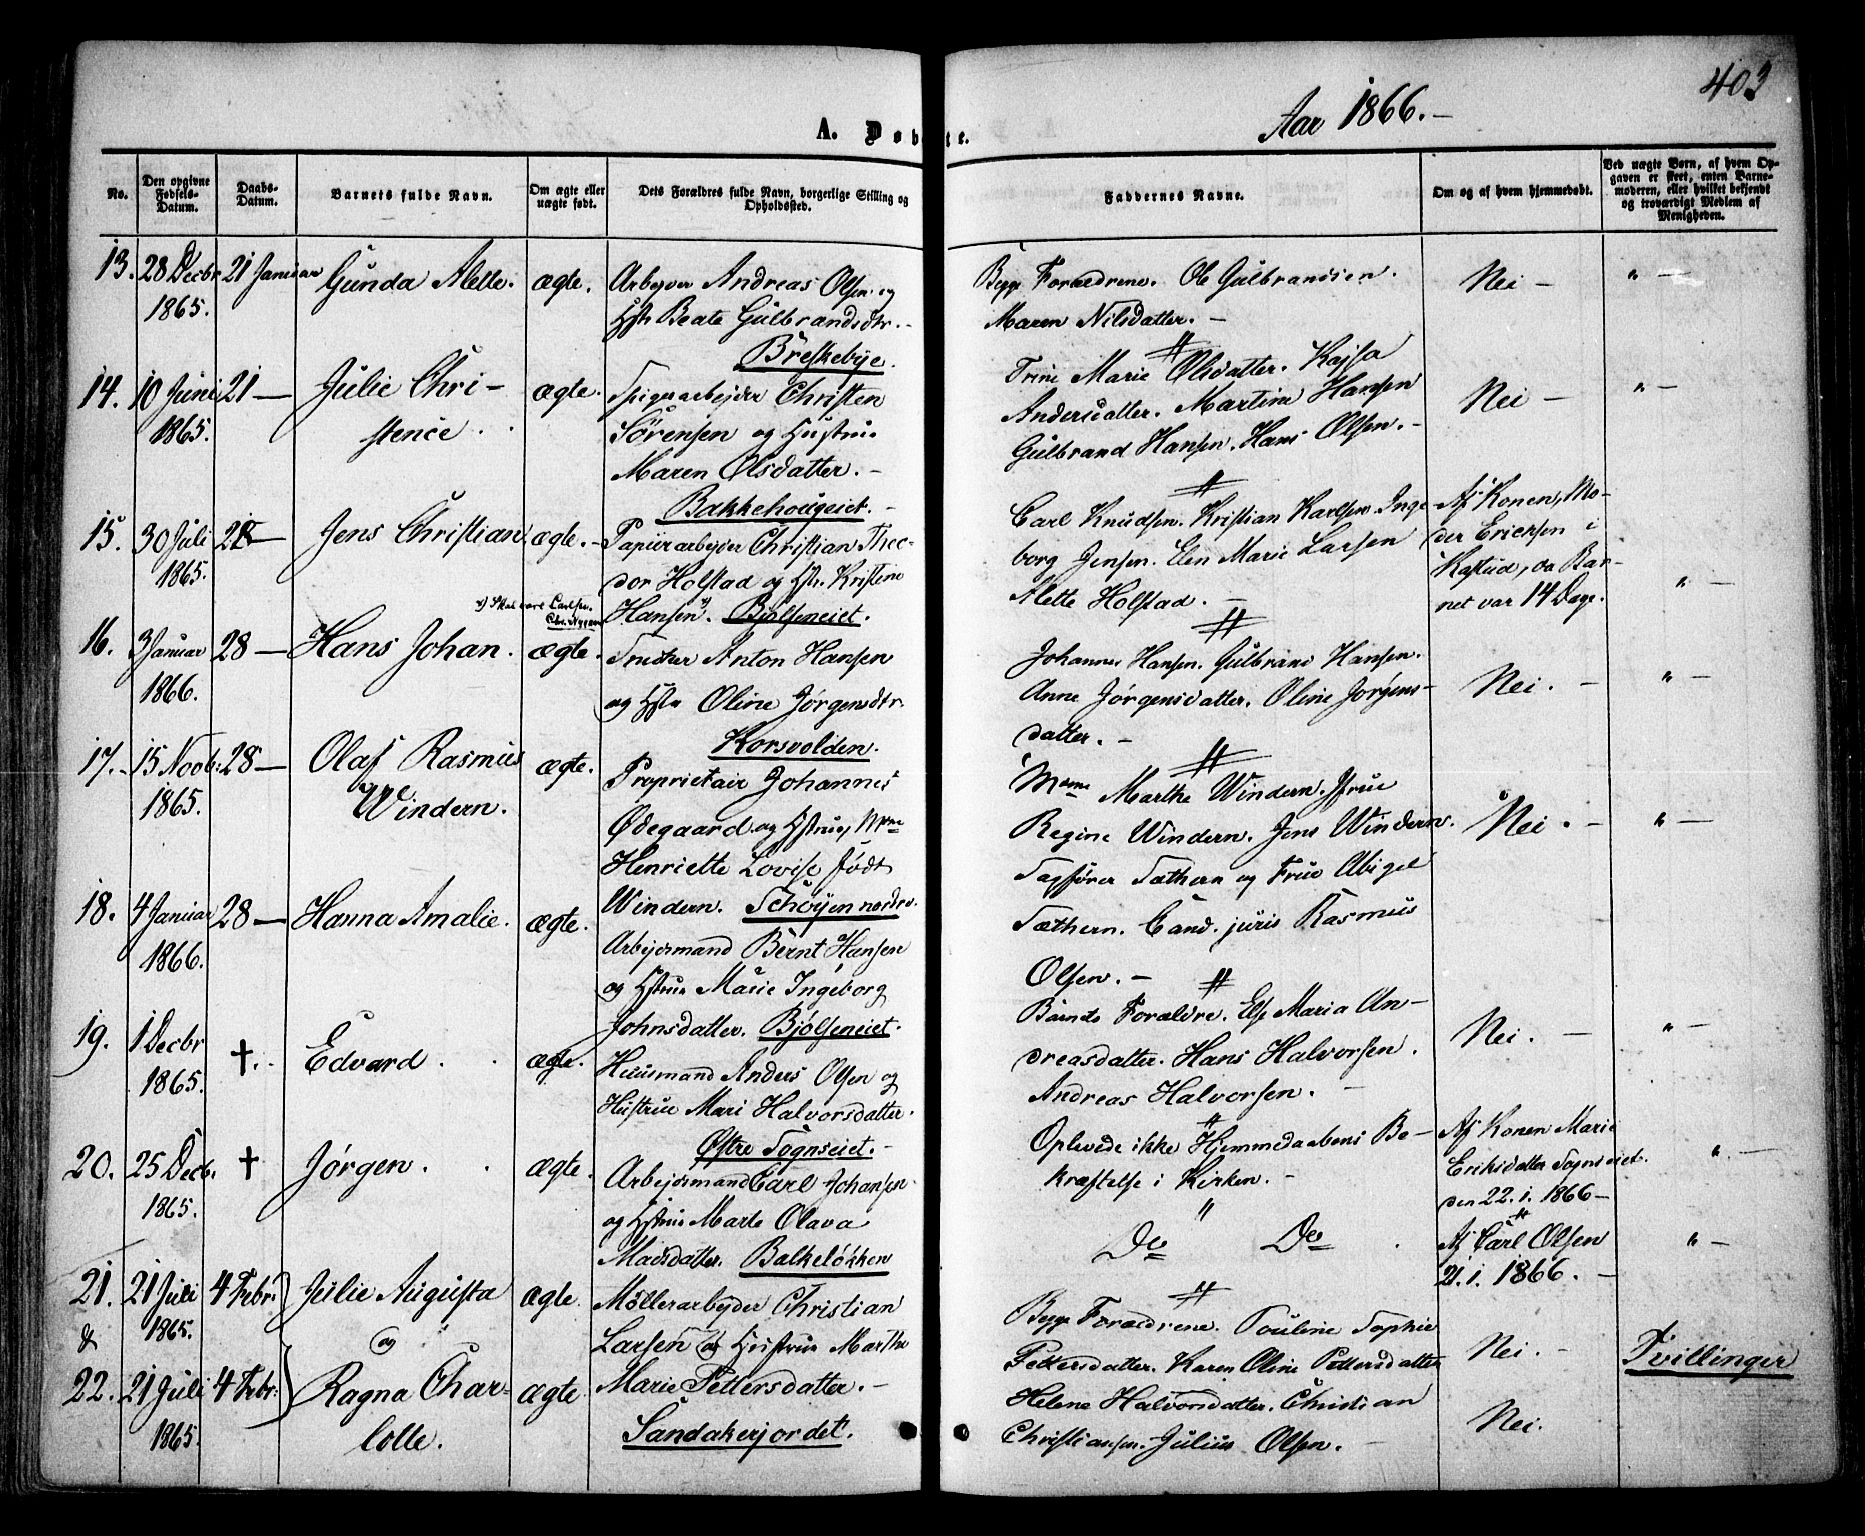 403
Aar 1866.-
A. Døbte.
No.
Den opgivne Fødsels-Datum.
Daabs-Datum.
Barnets fulde Navn.
Om ægte eller uægte født.
Dets Forældres fulde Navn, borgerlige Stilling og Opholdssted.
Faddernes Navne.
Om og af hvem hjemmedøbt.
Ved uægte Børn, af hvem Opgaven er skeet, enten Barnemoderen, eller hvilket bekjendt og troværdigt Medlem af Menigheden.
13. 28 Decbr 21 Januar Gunda Alette. ægte.
1865.
Arbeyder Andreas Olsen og
Hstr. Beate Gulbrandsdtr.-
Breskebye.
Begge Forældrene. Ole Gulbrandsen.
Maren Nilsdatter.-
Nei -
" -
14. 10 Juni 21 - Julie Chri-
1865. stence. ægte.
Spigerarbejder Christen
Sörensen og Hustrue
Maren Olsdatter.-
Bakkehougeiet.-
Trine Marie Olsdatter. Kajsa
Andersdatter. Martine Hansen
Gulbrand Hansen. Hans Olsen.-
Nei -
" -
15. 30 Juli 21 - Jens Christian. ægte.-
1865.
Papiirarbeyder Christian Theo-
dor Holstad og Hstr. Kristine
Hansen. Bjølseneiet.
Carl Knudsen. Kristian Karlsen. Inge-
borg Jensen. Elen Marie Larsen
Alette Holstad.-
Af Konen, Mo-
der Ericksen i
Kastud, da Bar-
net var 14 Dage.
" -
16. 3 Januar 28 - Hans Johan. ægte.
1866.
Snedker Anton Hansen
og Hstr Oline Jørgensdtr.
Korsvolden.
Johannes Hansen. Gulbrand Hansen.
Anne Jørgensdatter. Oline Jørgens-
datter.-
Nei.-
" -
17.- 15 Novb. 28 - Olaf Rasmus
1865. Windern. ægte.
Proprietair Johannes
Ødegaard og Hstrue, Mme
Henriette Lovise født
Windern. Schøyen nordre.
Mme Marthe Windern. Frue
Regine Windern. Jens Windern.
Sagfører Sæthern og Frue Abigel
Sæthern. Cand. juris Rasmus
Olsen.-
Nei.-
" -
18. 4 Januar 28 - Hanna Amalie. ægte.
1866.
Arbejdsmand Bernt Hansen
og Hstrue Marie Ingeborg
Johnsdatter. Bjølseneiet.
Barnets Forældre. Else Maria An-
dreasdatter. Hans Halvorsen.
Andreas Halvorsen.-
Nei.-
" -
19. 1 Decbr †. Edvard. ægte.
1865.
Huusmand Anders Olsen og
Hustrue Mari Halvorsdatter.
Østre Sognseiet.-
Oplevede ikke Hjemmedaabens Be-
kræftelse i Kirken.-
Af Konen Marie
Eriksdatter Sognseiet.
den 22. i. 1866 -
" -
20. 25 Decb. † Jørgen. ægte.
1865.
Arbejdsmand Carl Johansen
og Hstrue Marte Olava
Madsdatter. Balkeløkken
Do Do
Af Carl Olsen
21. i. 1866.-
" -
21. 21 Juli 4 Febr. Julie Augusta ægte.
& 1865. og
22. 21 Juli 4 Febr. Ragna Char- ægte
1865. lotte.
Møllerarbeyder Christian
Larsen og Hustrue Marthe
Marie Pettersdatter.-
Sandakerjordet.
Begge Forældrene. Pouline Sophie
Pettersdatter. Karen Oline Pettersdatter
Helene Halvorsdatter. Christian
Christiansen. Julius Olsen.-
Nei.-
Nei.
Tvillinger